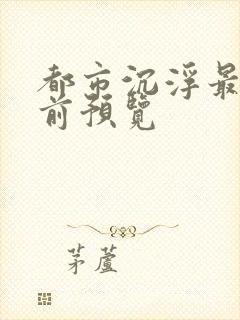 都市沉浮最
前預覽
茅蘆